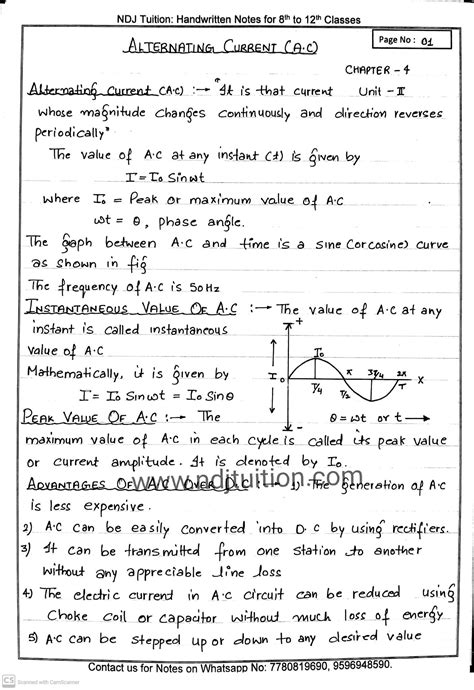 NDJ Tuition: Handwritten Notes for 8th to 12th Classes
Page No: 01
ALTERNATING CURRENT (A.C)
CHAPTER - 4
Alternating Current (A.C) :→ "It is that current Unit - II
whose magnitude changes continuously and direction reverses
periodically"
The value of A.C at any instant (t) is given by
I = I₀ Sinωt
where I₀ = Peak or maximum value of A.C
ωt = θ, phase angle.
The graph between A.C and time is a sine (or cosine) curve
as shown in fig
The frequency of A.C is 50Hz
INSTANTANEOUS VALUE OF A.C :→ The value of A.C at any
instant is called instantaneous
value of A.C
Mathematically, it is given by
I = I₀ Sinωt = I₀ Sinθ
+
I₀
I
0
π
3T/4
2π
T/4
T/2
T
X
-
θ = ωt or t →
PEAK VALUE OF A.C :→ The
maximum value of A.C in each cycle is called its peak value
or current amplitude. It is denoted by I₀.
www.ndjtuition.com
ADVANTAGES OF A/C OVER D/C :→ 1) The generation of A.C
is less expensive.
2) A.C can be easily converted into D.C by using rectifiers.
3) It can be transmitted from one station to another
without any appreciable line loss
4) The electric current in A.C circuit can be reduced using
Choke coil or capacitor without much loss of energy
5) A.C can be stepped up or down to any desired value
CS Scanned with CamScanner
Contact us for Notes on Whatsapp No: 7780819690, 9596948590.